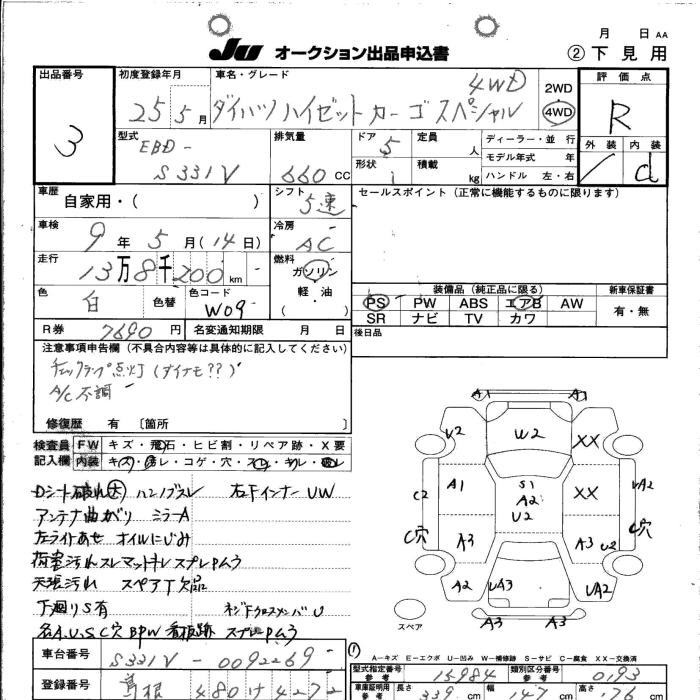 JU オークション出品申込書
月 日 AA
② 下見用
出品番号 3
初度登録年月 25 5月
車名・グレード 4WD
ダイハツ ハイゼット カーゴ スペシャル
2WD
4WD
評価点 R
外装 内装 d
型式 EBD-
S331V
排気量 660 CC
ドア 5
形状
定員 人
積載 kg
ディーラー・並 行
モデル年式 年
ハンドル 左・右
車歴 自家用・( )
シフト 5速
セールスポイント(正常に機能するものに限ります)
車検 9年5月(14日)
冷房 AC
走行 13万8千200km
燃料 ガソリン
軽・油
( )
色 白
色替
色コード W09
R券 7690円 名変通知期限 月 日
装備品(純正品に限る)
PS PW ABS エアB AW
SR ナビ TV カワ
新車保証書
有・無
後日品
注意事項申告欄(不具合内容等は具体的に記入してください)
チェックランプ点灯(ダイナモ??)
A/C不調
修復歴 有 〔箇所 〕
検査員 FW キズ・飛石・ヒビ割・リペア跡・X要
記入欄 内装 キズ・汚レ・コゲ・穴・スレ・キレ・破レ
Dシート破れ大 ハンドルスレ 左Fインナー UW
アンテナ曲がり ミラーA
左ライトあせ オイルにじみ
荷室汚れスレ マットキレ スプレPムラ
天張汚れ スペアT欠品
下廻りS有 ネジ Fクロスメンバ U
各A.U.S.C穴 BPW 看板跡 スプレPムラ
A1 A1
U2 W2 XX
C2 A1 S1 XX UA2
A2
U2
C穴 A3 A3 U2 C穴
A2 UA3 UA2
A3 A3
スペア
A-キズ E-エクボ U-凹み W-補修跡 S-サビ C-腐食 XX-交換済
車台番号 S331V-0092269
登録番号 島根 480 け 4272
型式指定番号 参考 15984
類別区分番号 参考 0193
車庫証明用 参考 長さ 339 cm 幅 147 cm 高さ 176 cm